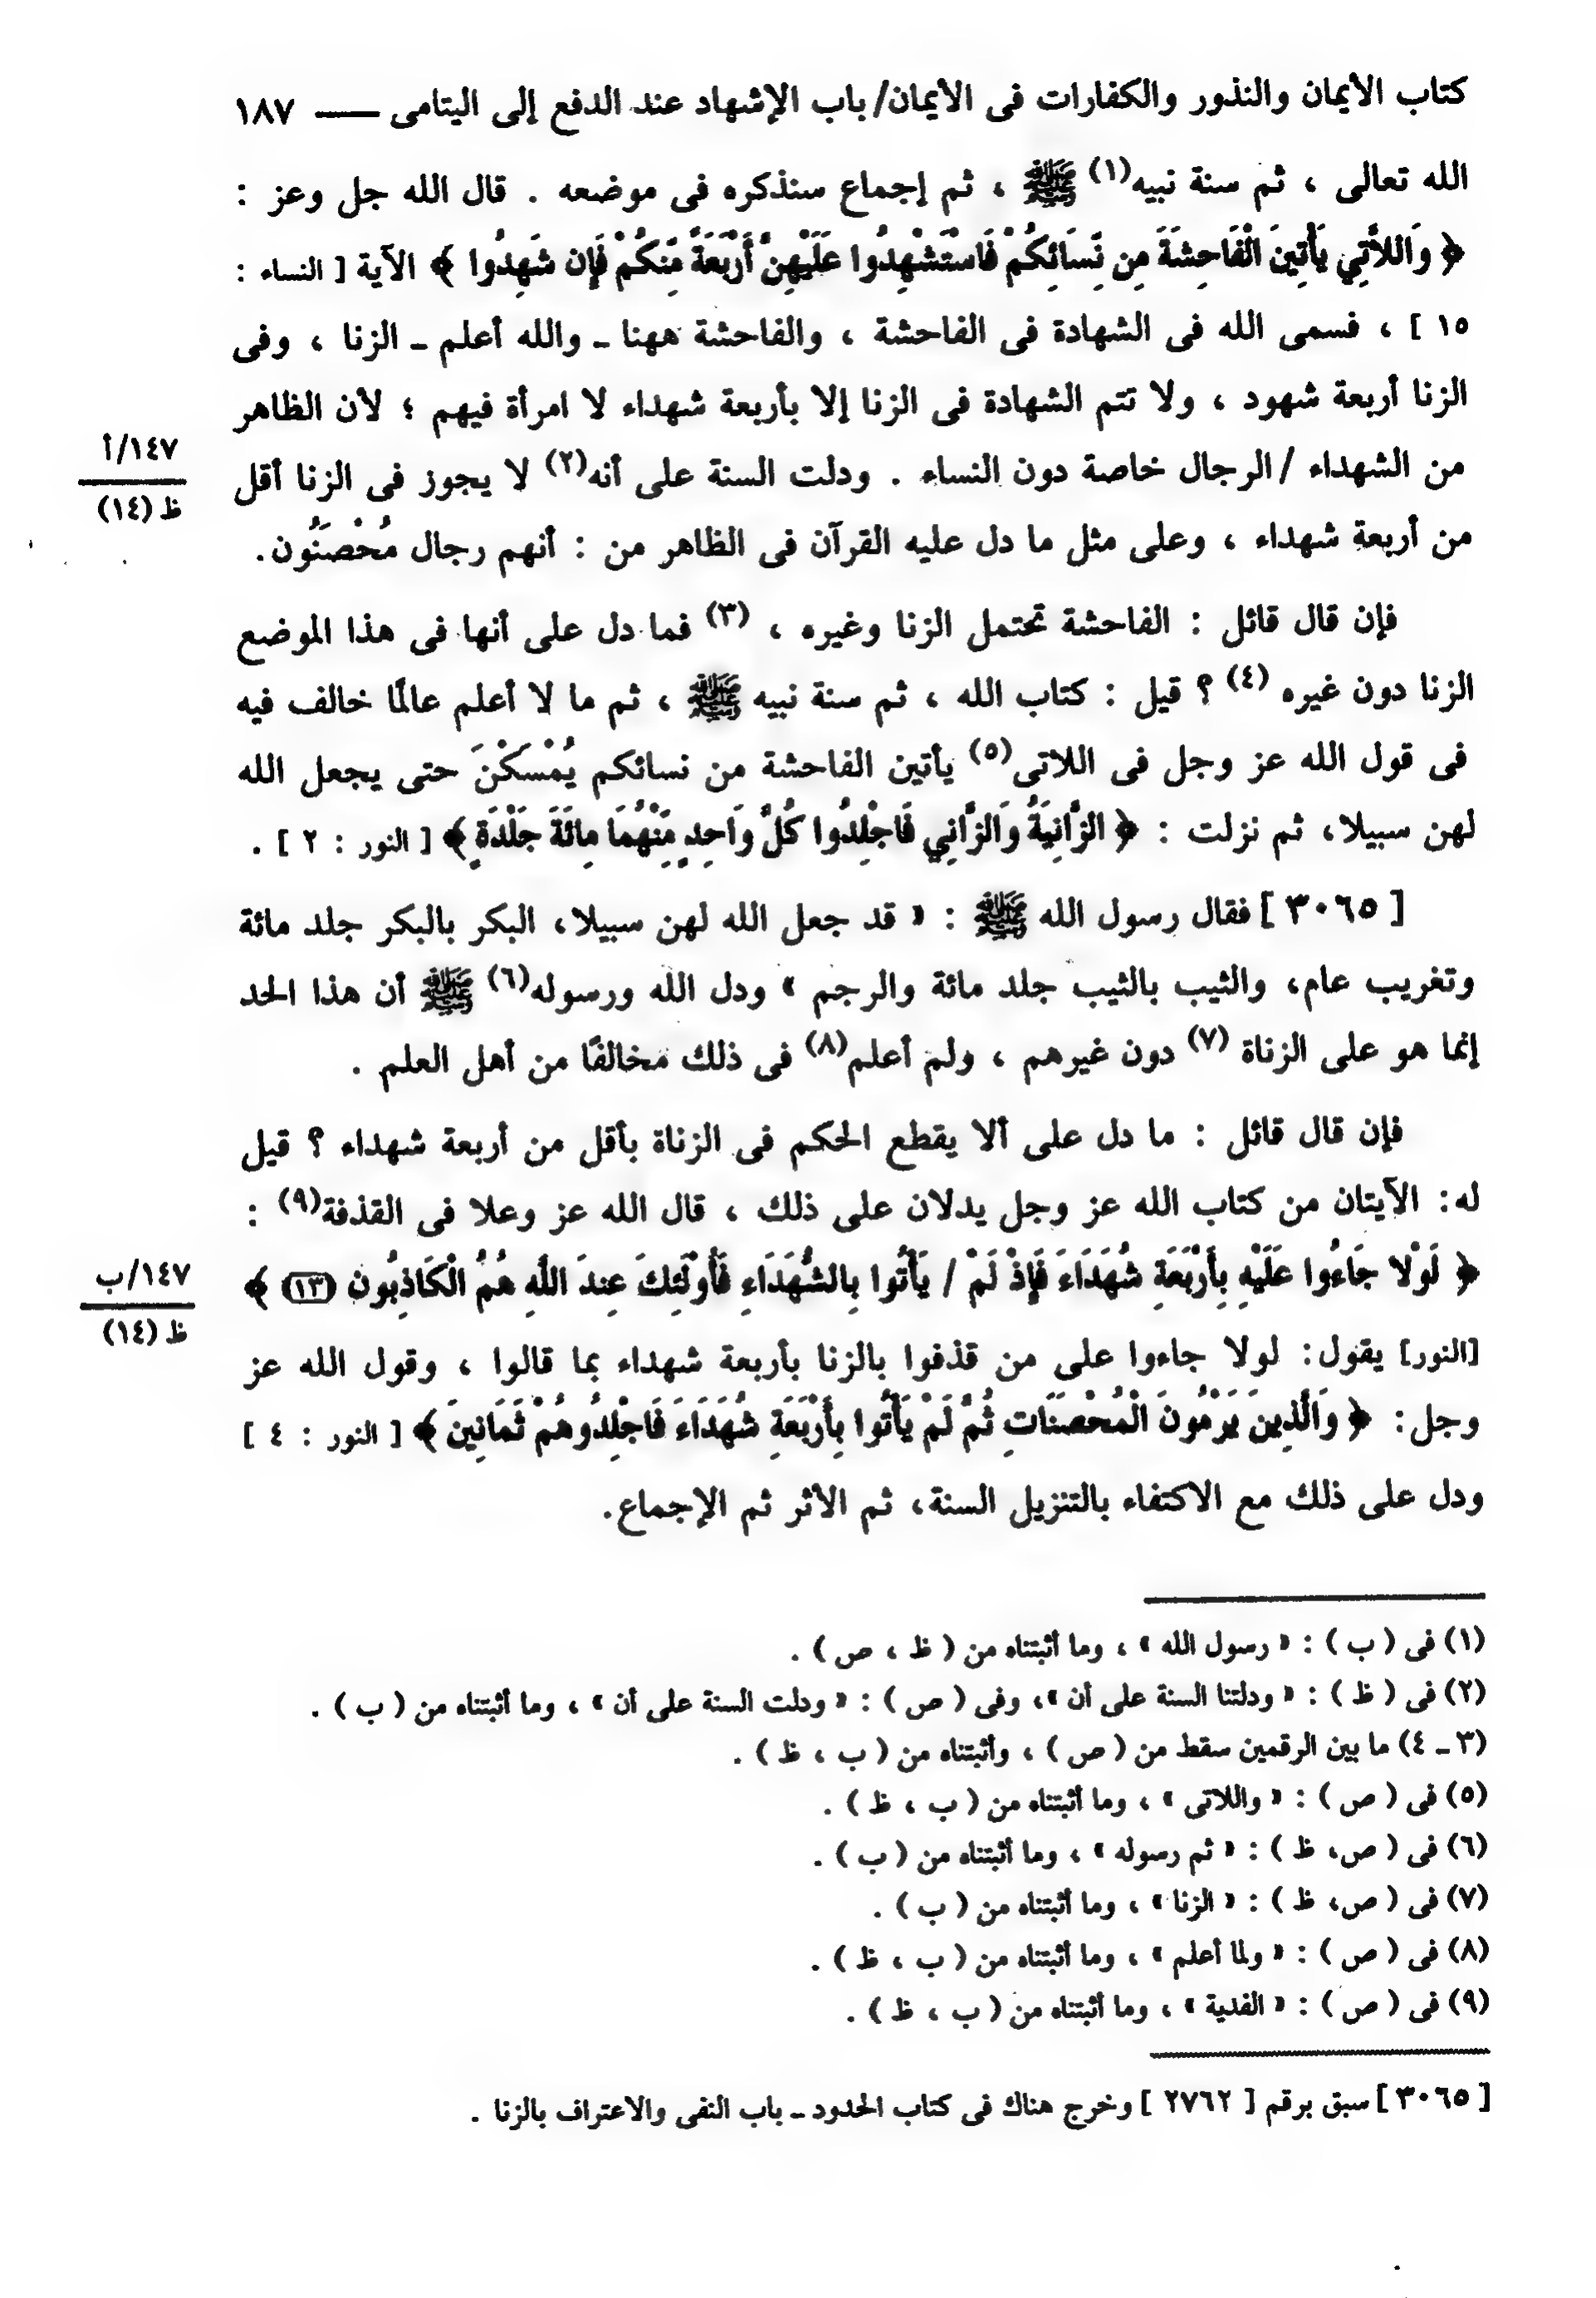 كتاب الأيمان والنذور والكفارات فى الأيمان/ باب الإشهاد عند الدفع إلى اليتامى ــــ ١٨٧
الله تعالى ، ثم سنة نبيه(١) ﷺ ، ثم إجماع سنذكره فى موضعه . قال الله جل وعز :
﴿ وَاللاَّتِي يَأْتِينَ الْفَاحِشَةَ مِن نِّسَائِكُمْ فَاسْتَشْهِدُوا عَلَيْهِنَّ أَرْبَعَةً مِّنكُمْ فَإِن شَهِدُوا ﴾ الآية [ النساء :
١٥ ] ، فسمى الله فى الشهادة فى الفاحشة ، والفاحشة ههنا ـ والله أعلم ـ الزنا ، وفى
الزنا أربعة شهود ، ولا تتم الشهادة فى الزنا إلا بأربعة شهداء لا امرأة فيهم ؛ لأن الظاهر
من الشهداء / الرجال خاصة دون النساء . ودلت السنة على أنه(٢) لا يجوز فى الزنا أقل
١٤٧/أ
ظ (١٤)
من أربعة شهداء ، وعلى مثل ما دل عليه القرآن فى الظاهر من : أنهم رجال مُحْصَنُون.
فإن قال قائل : الفاحشة تحتمل الزنا وغيره ، (٣) فما دل على أنها فى هذا الموضع
الزنا دون غيره (٤) ؟ قيل : كتاب الله ، ثم سنة نبيه ﷺ ، ثم ما لا أعلم عالمًا خالف فيه
فى قول الله عز وجل فى اللاتى(٥) يأتين الفاحشة من نسائكم يُمْسَكْنَ حتى يجعل الله
لهن سبيلا، ثم نزلت : ﴿ الزَّانِيَةُ وَالزَّانِي فَاجْلِدُوا كُلَّ وَاحِدٍ مِّنْهُمَا مِائَةَ جَلْدَةٍ ﴾ [ النور : ٢ ] .
[ ٣٠٦٥ ] فقال رسول الله ﷺ : « قد جعل الله لهن سبيلا، البكر بالبكر جلد مائة
وتغريب عام، والثيب بالثيب جلد مائة والرجم » ودل الله ورسوله(٦) ﷺ أن هذا الحد
إنما هو على الزناة (٧) دون غيرهم ، ولم أعلم(٨) فى ذلك مخالفًا من أهل العلم .
فإن قال قائل : ما دل على ألا يقطع الحكم فى الزناة بأقل من أربعة شهداء ؟ قيل
له: الآيتان من كتاب الله عز وجل يدلان على ذلك ، قال الله عز وعلا فى القذفة(٩) :
﴿ لَوْلا جَاءُوا عَلَيْهِ بِأَرْبَعَةِ شُهَدَاءَ فَإِذْ لَمْ / يَأْتُوا بِالشُّهَدَاءِ فَأُوْلَئِكَ عِندَ اللَّهِ هُمُ الْكَاذِبُون (١٣) ﴾
١٤٧/ب
ظ (١٤)
[النور] يقول: لولا جاءوا على من قذفوا بالزنا بأربعة شهداء بما قالوا ، وقول الله عز
وجل: ﴿ وَالَّذِينَ يَرْمُونَ الْمُحْصَنَاتِ ثُمَّ لَمْ يَأْتُوا بِأَرْبَعَةِ شُهَدَاءَ فَاجْلِدُوهُمْ ثَمَانِينَ ﴾ [ النور : ٤ ]
ودل على ذلك مع الاكتفاء بالتنزيل السنة، ثم الأثر ثم الإجماع.
(١) فى ( ب ) : « رسول الله » ، وما أثبتناه من ( ظ ، ص ) .
(٢) فى ( ظ ) : « ودلتنا السنة على أن »، وفى ( ص ) : « ودلت السنة على أن » ، وما أثبتناه من ( ب ) .
(٣ ـ ٤) ما بين الرقمين سقط من ( ص ) ، وأثبتناه من ( ب ، ظ ) .
(٥) فى ( ص ) : « واللاتى » ، وما أثبتناه من ( ب ، ظ ) .
(٦) فى ( ص، ظ ) : « ثم رسوله » ، وما أثبتناه من ( ب ) .
(٧) فى ( ص، ظ ) : « الزنا » ، وما أثبتناه من ( ب ) .
(٨) فى ( ص ) : « ولما أعلم » ، وما أثبتناه من ( ب ، ظ ) .
(٩) فى ( ص ) : « الفدية » ، وما أثبتناه من ( ب ، ظ ) .
[ ٣٠٦٥ ] سبق برقم [ ٢٧٦٢ ] وخرج هناك فى كتاب الحدود ـ باب النفى والاعتراف بالزنا .